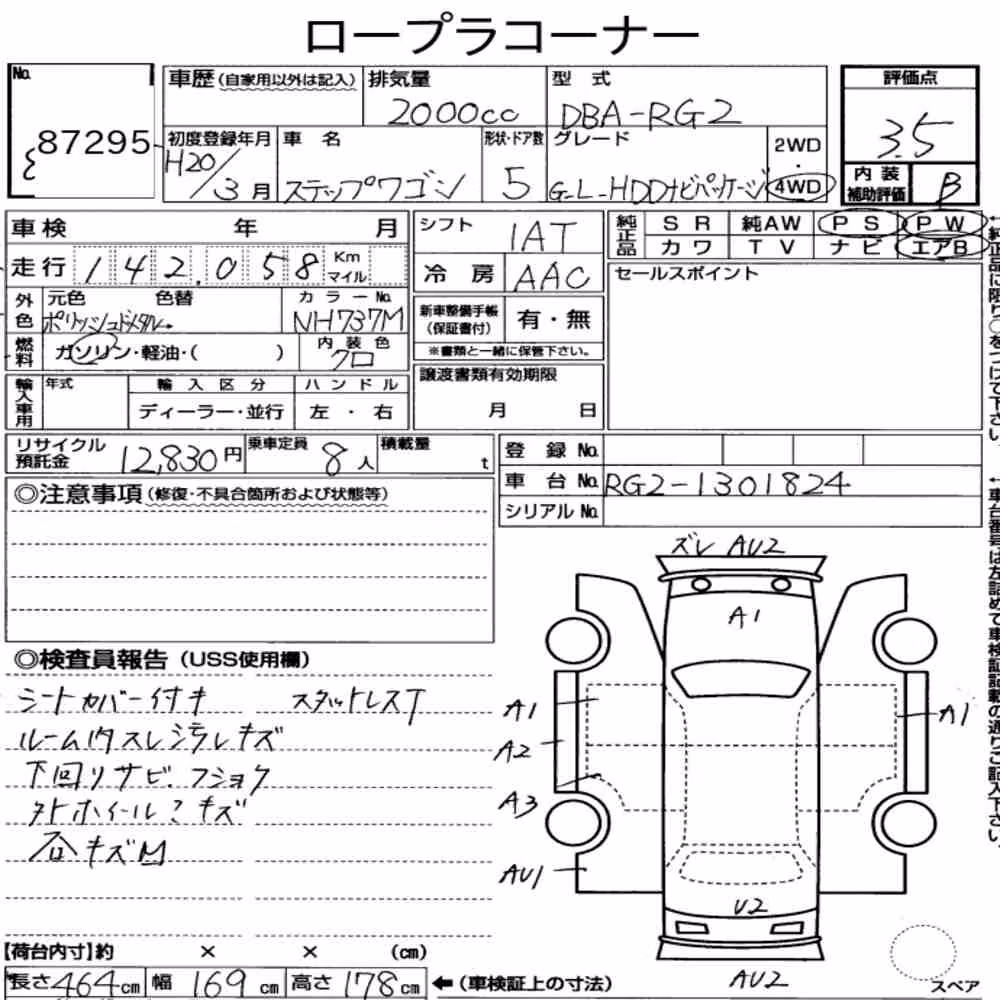 ロープラコーナー
No.
87295
車歴(自家用以外は記入) 排気量 型 式
2000cc DBA-RG2
初度登録年月 車 名 形状・ドア数 グレード
H20/3月 ステップワゴン 5 G-L-HDDナビパッケージ
2WD
・
4WD
評価点
3.5
内装補助評価 B
車検 年 月
走行 142,058 Km マイル
外色 元色 色替 カラーNo.
ポリッシュドメタル NH737M
燃料 ガソリン・軽油・( ) 内装色 クロ
輸入車用 年式 輸入区分 ハンドル
ディーラー・並行 左 ・ 右
シフト IAT
冷 房 AAC
新車整備手帳(保証書付) 有・無
※書類と一緒に保管下さい。
譲渡書類有効期限
月 日
純正品 SR 純AW PS PW
カワ TV ナビ エアB
セールスポイント
←純正品に限り○をつけて下さい。
リサイクル預託金 12,830円 乗車定員 8人 積載量 t
登 録 No.
車 台 No. RG2-1301824
シリアル No.
←車台番号は左詰めで車検証記載の通りご記入下さい。
◎注意事項(修復・不具合箇所および状態等)
◎検査員報告(USS使用欄)
シートカバー付キ スタットレスT
ルーム内スレシラレキズ
下回リサビ.フショク
外ホイール?キズ
石キズM
ズレ AU2
A1
A1
A2
A3
AU1
A1
U2
AU2
スペア
【荷台内寸】約 × × (cm)
長さ464cm 幅 169cm 高さ178cm ←(車検証上の寸法)